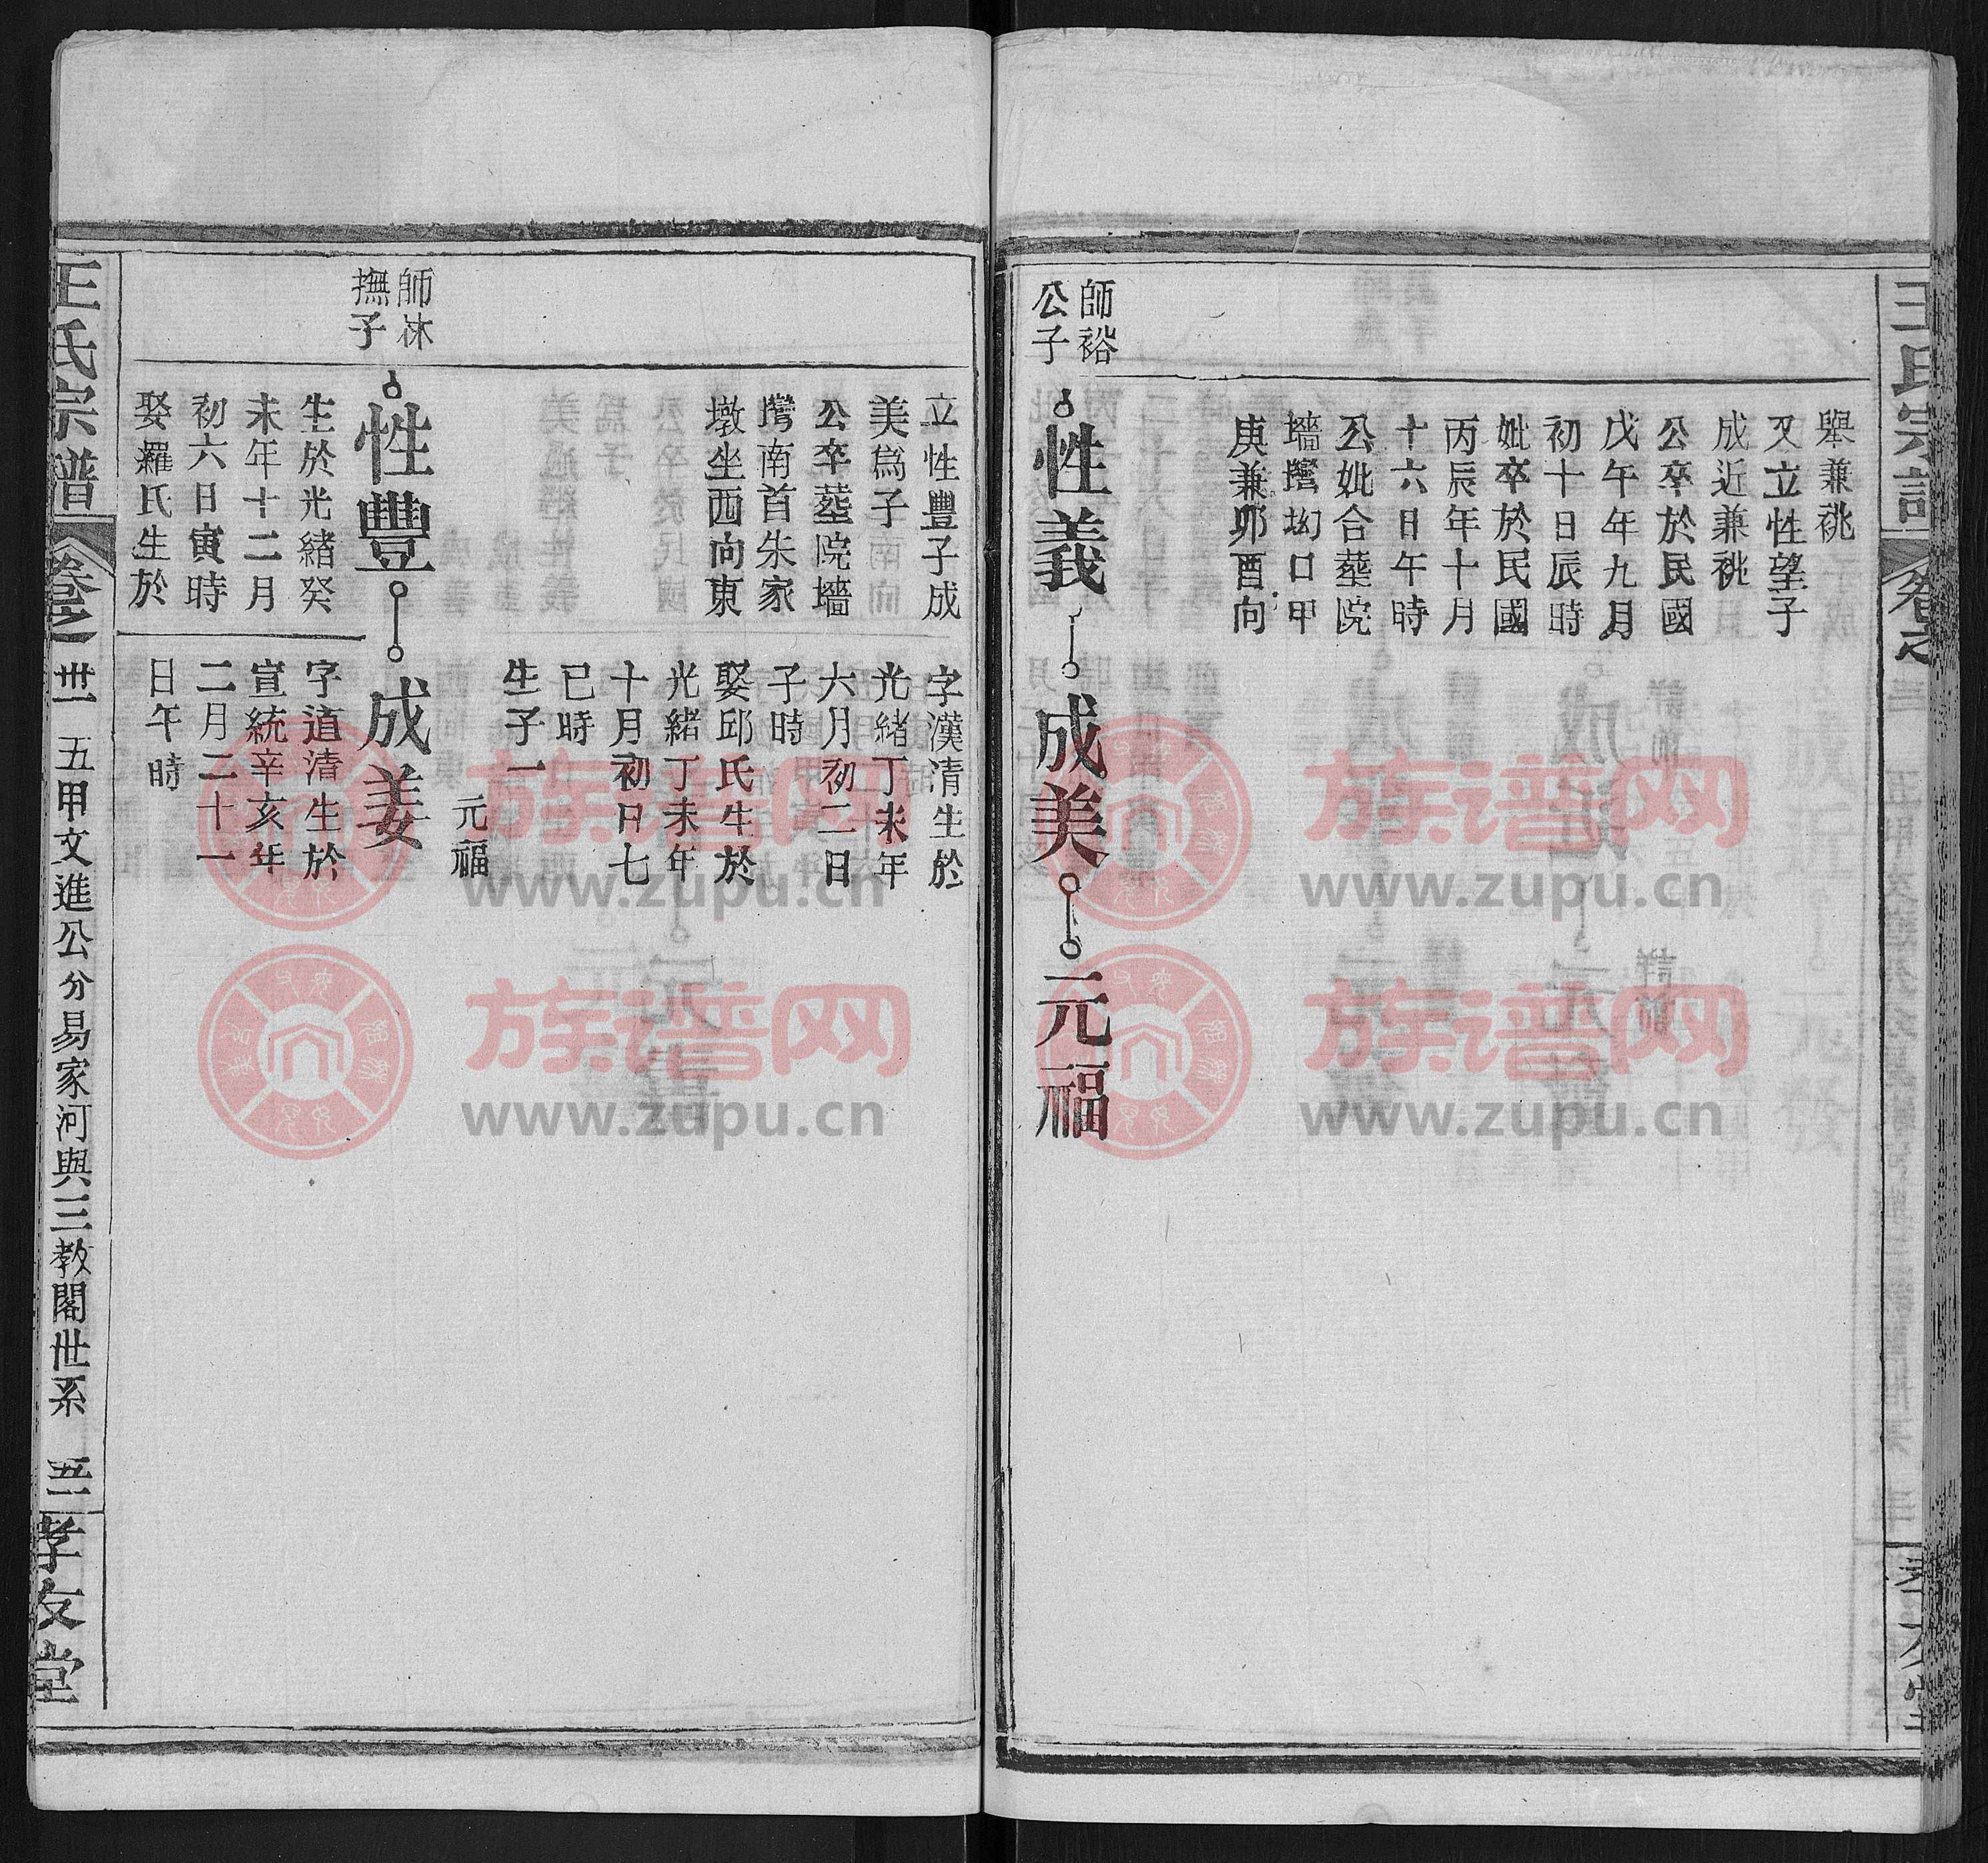 舉兼祧
又立性望子
成近兼祧
公卒於民國
戊午年九月
初十日辰時
妣卒於民國
丙辰年十月
十六日午時
公妣合塟院
墻灣坳口甲
庚兼卯酉向
師裕
公子
性義
成美
元福
立性豐子成
美爲子
公卒塟院墻
灣南首朱家
墩坐西向東
字漢清生於
光緒丁未年
六月初二日
子時
娶邱氏生於
光緒丁未年
十月初日七
巳時
生子一
元福
師沐
撫子
性豐
成姜
生於光緒癸
未年十二月
初六日寅時
娶羅氏生於
字道清生於
宣統辛亥年
二月二十一
日午時
王氏宗譜
卷之
卅一
五甲文進公分易家河與三教閣世系
五二
孝友堂
族谱网
www.zupu.cn
族谱网
www.zupu.cn
族谱网
www.zupu.cn
族谱网
www.zupu.cn